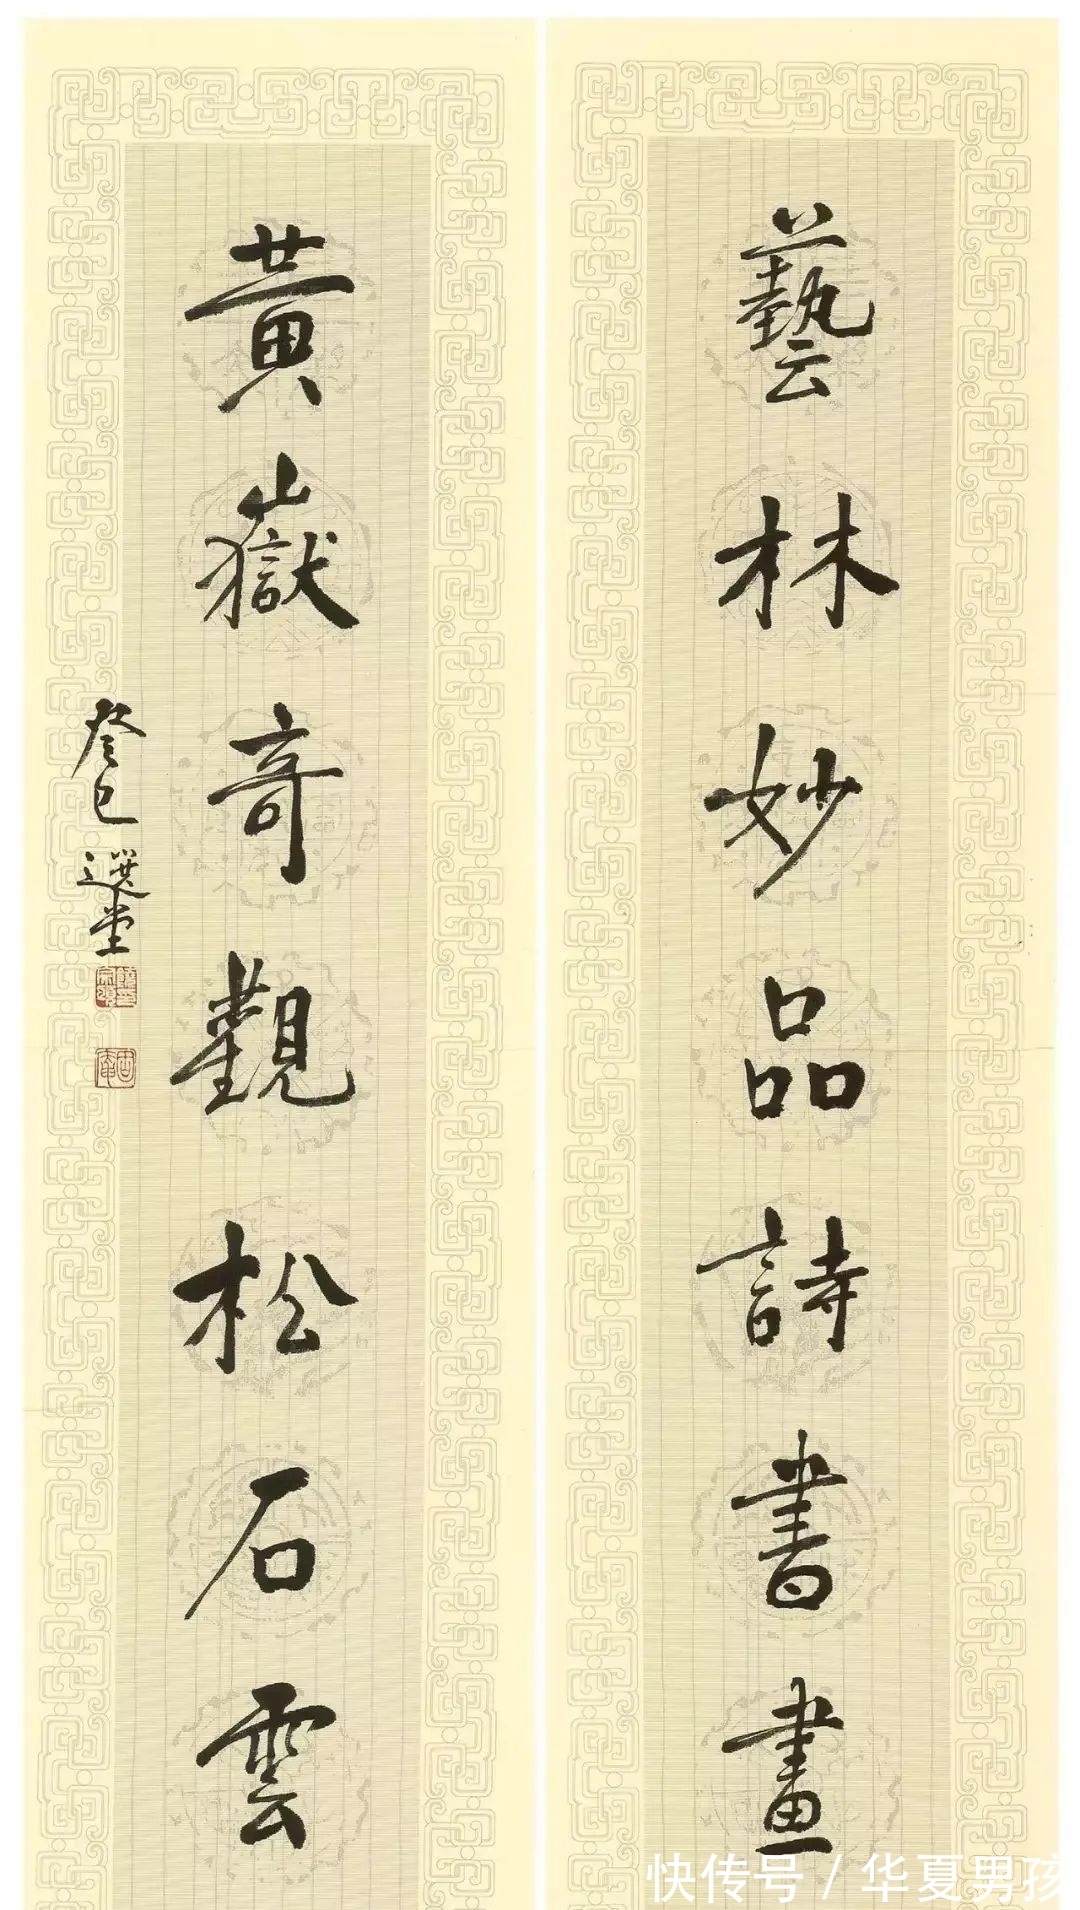 藝林妙品詩書畫
黃嶽奇觀松石雲
癸巳 選堂
快传号 / 华夏男孩